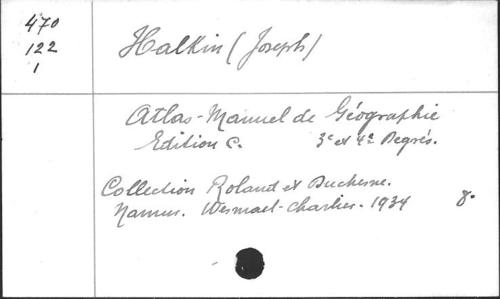 470
122
1
Halkin (Joseph)
Atlas-Manuel de Géographie
Edition C. 3e et 4e Degrés.
Collection Roland et Duchesne.
Namur. Wesmael-Charlier. 1934 8.